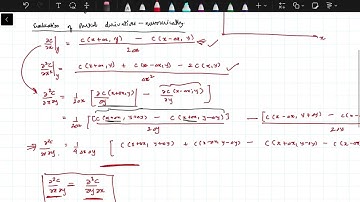 Evaluation of Partial derivatives - numerically
∂C/∂x|y = C(x+Δx, y) - C(x-Δx, y) / 2Δx
∂²C/∂x²|y = C(x+Δx, y) + C(x-Δx, y) - 2C(x, y) / Δx²
∂²C/∂x∂y = 1/2Δx [∂C(x+Δx, y)/∂y - ∂C(x-Δx, y)/∂y]
= 1/2Δx [C(x+Δx, y+Δy) - C(x+Δx, y-Δy) / 2Δy - [C(x-Δx, y+Δy) - C(x-Δx / 2Δy
⇒ ∂²C/∂x∂y = 1/4ΔxΔy [C(x+Δx, y+Δy) + C(x-Δx, y-Δy) - C(x+Δx, y-Δy) - C(x-Δx
∂²C/∂x∂y = ∂²C/∂y∂x
x